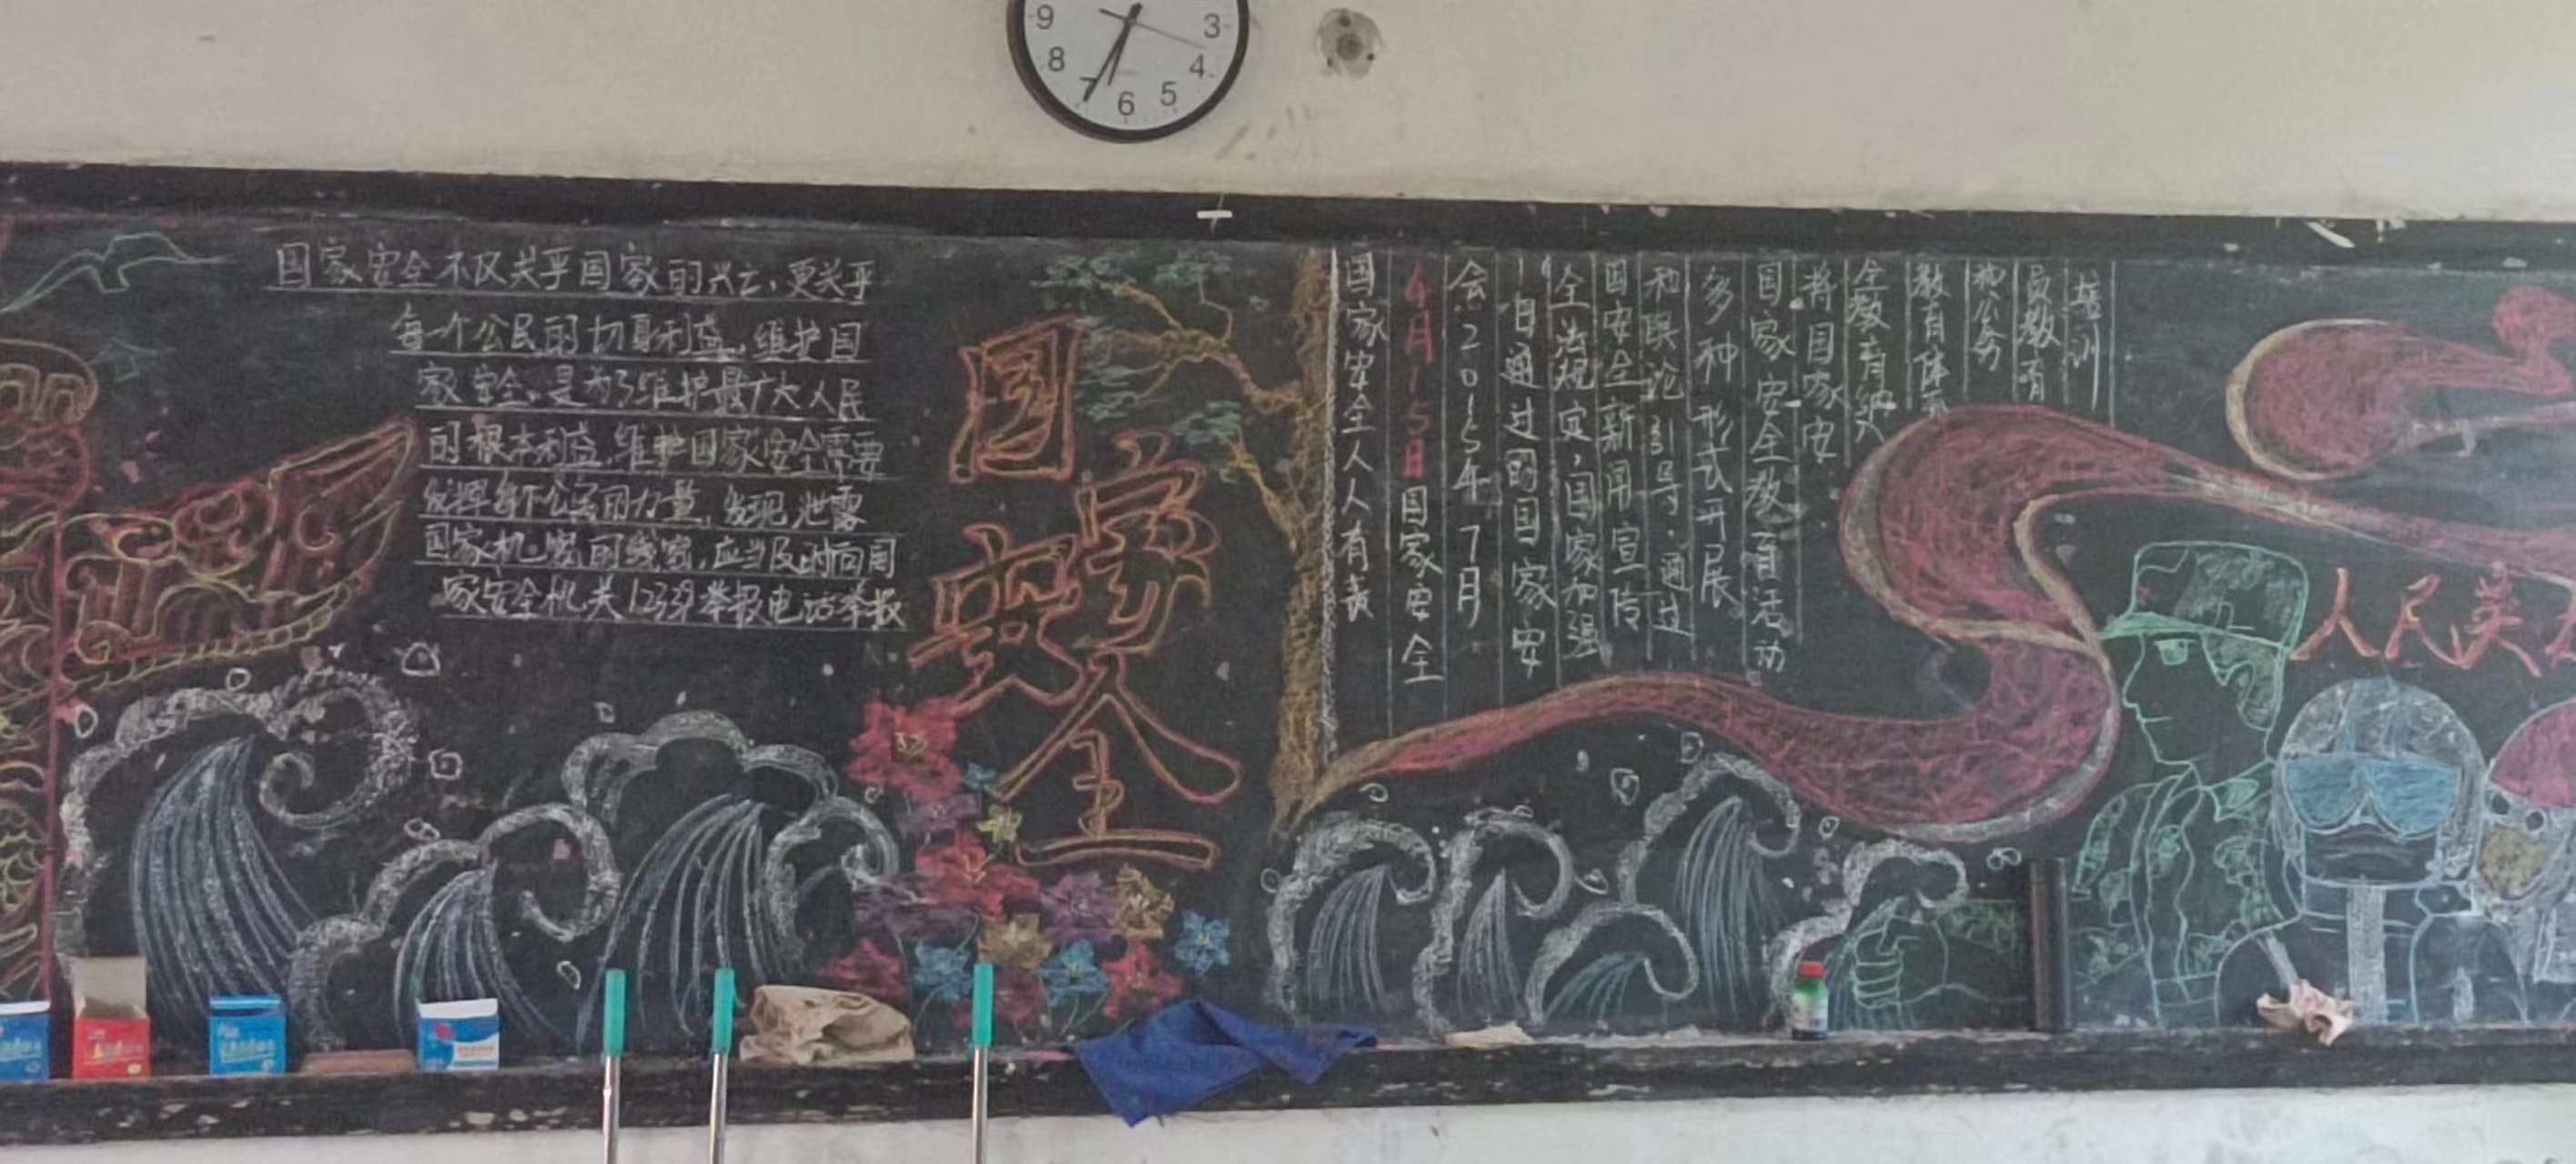 9
3
8
4
7
6
5
国家安全不仅关乎国家的兴亡,更关乎
每一个公民的切身利益,维护国
家安全,是为了维护最广大人民
的根本利益,维护国家安全需要
发挥每个公民的力量,发现泄露
国家机密的线索,应当及时向国
家安全机关12339举报电话举报
国家安全
国家安全人人有责
4月15日国家安全
会2015年7月
1日通过的国家安
全法规定,国家加强
国安全新闻宣传
和舆论引导,通过
多种形式开展
国家安全教育活动
将国家安
全教育纳入
教育体系
和公务
员教育
培训
人民美